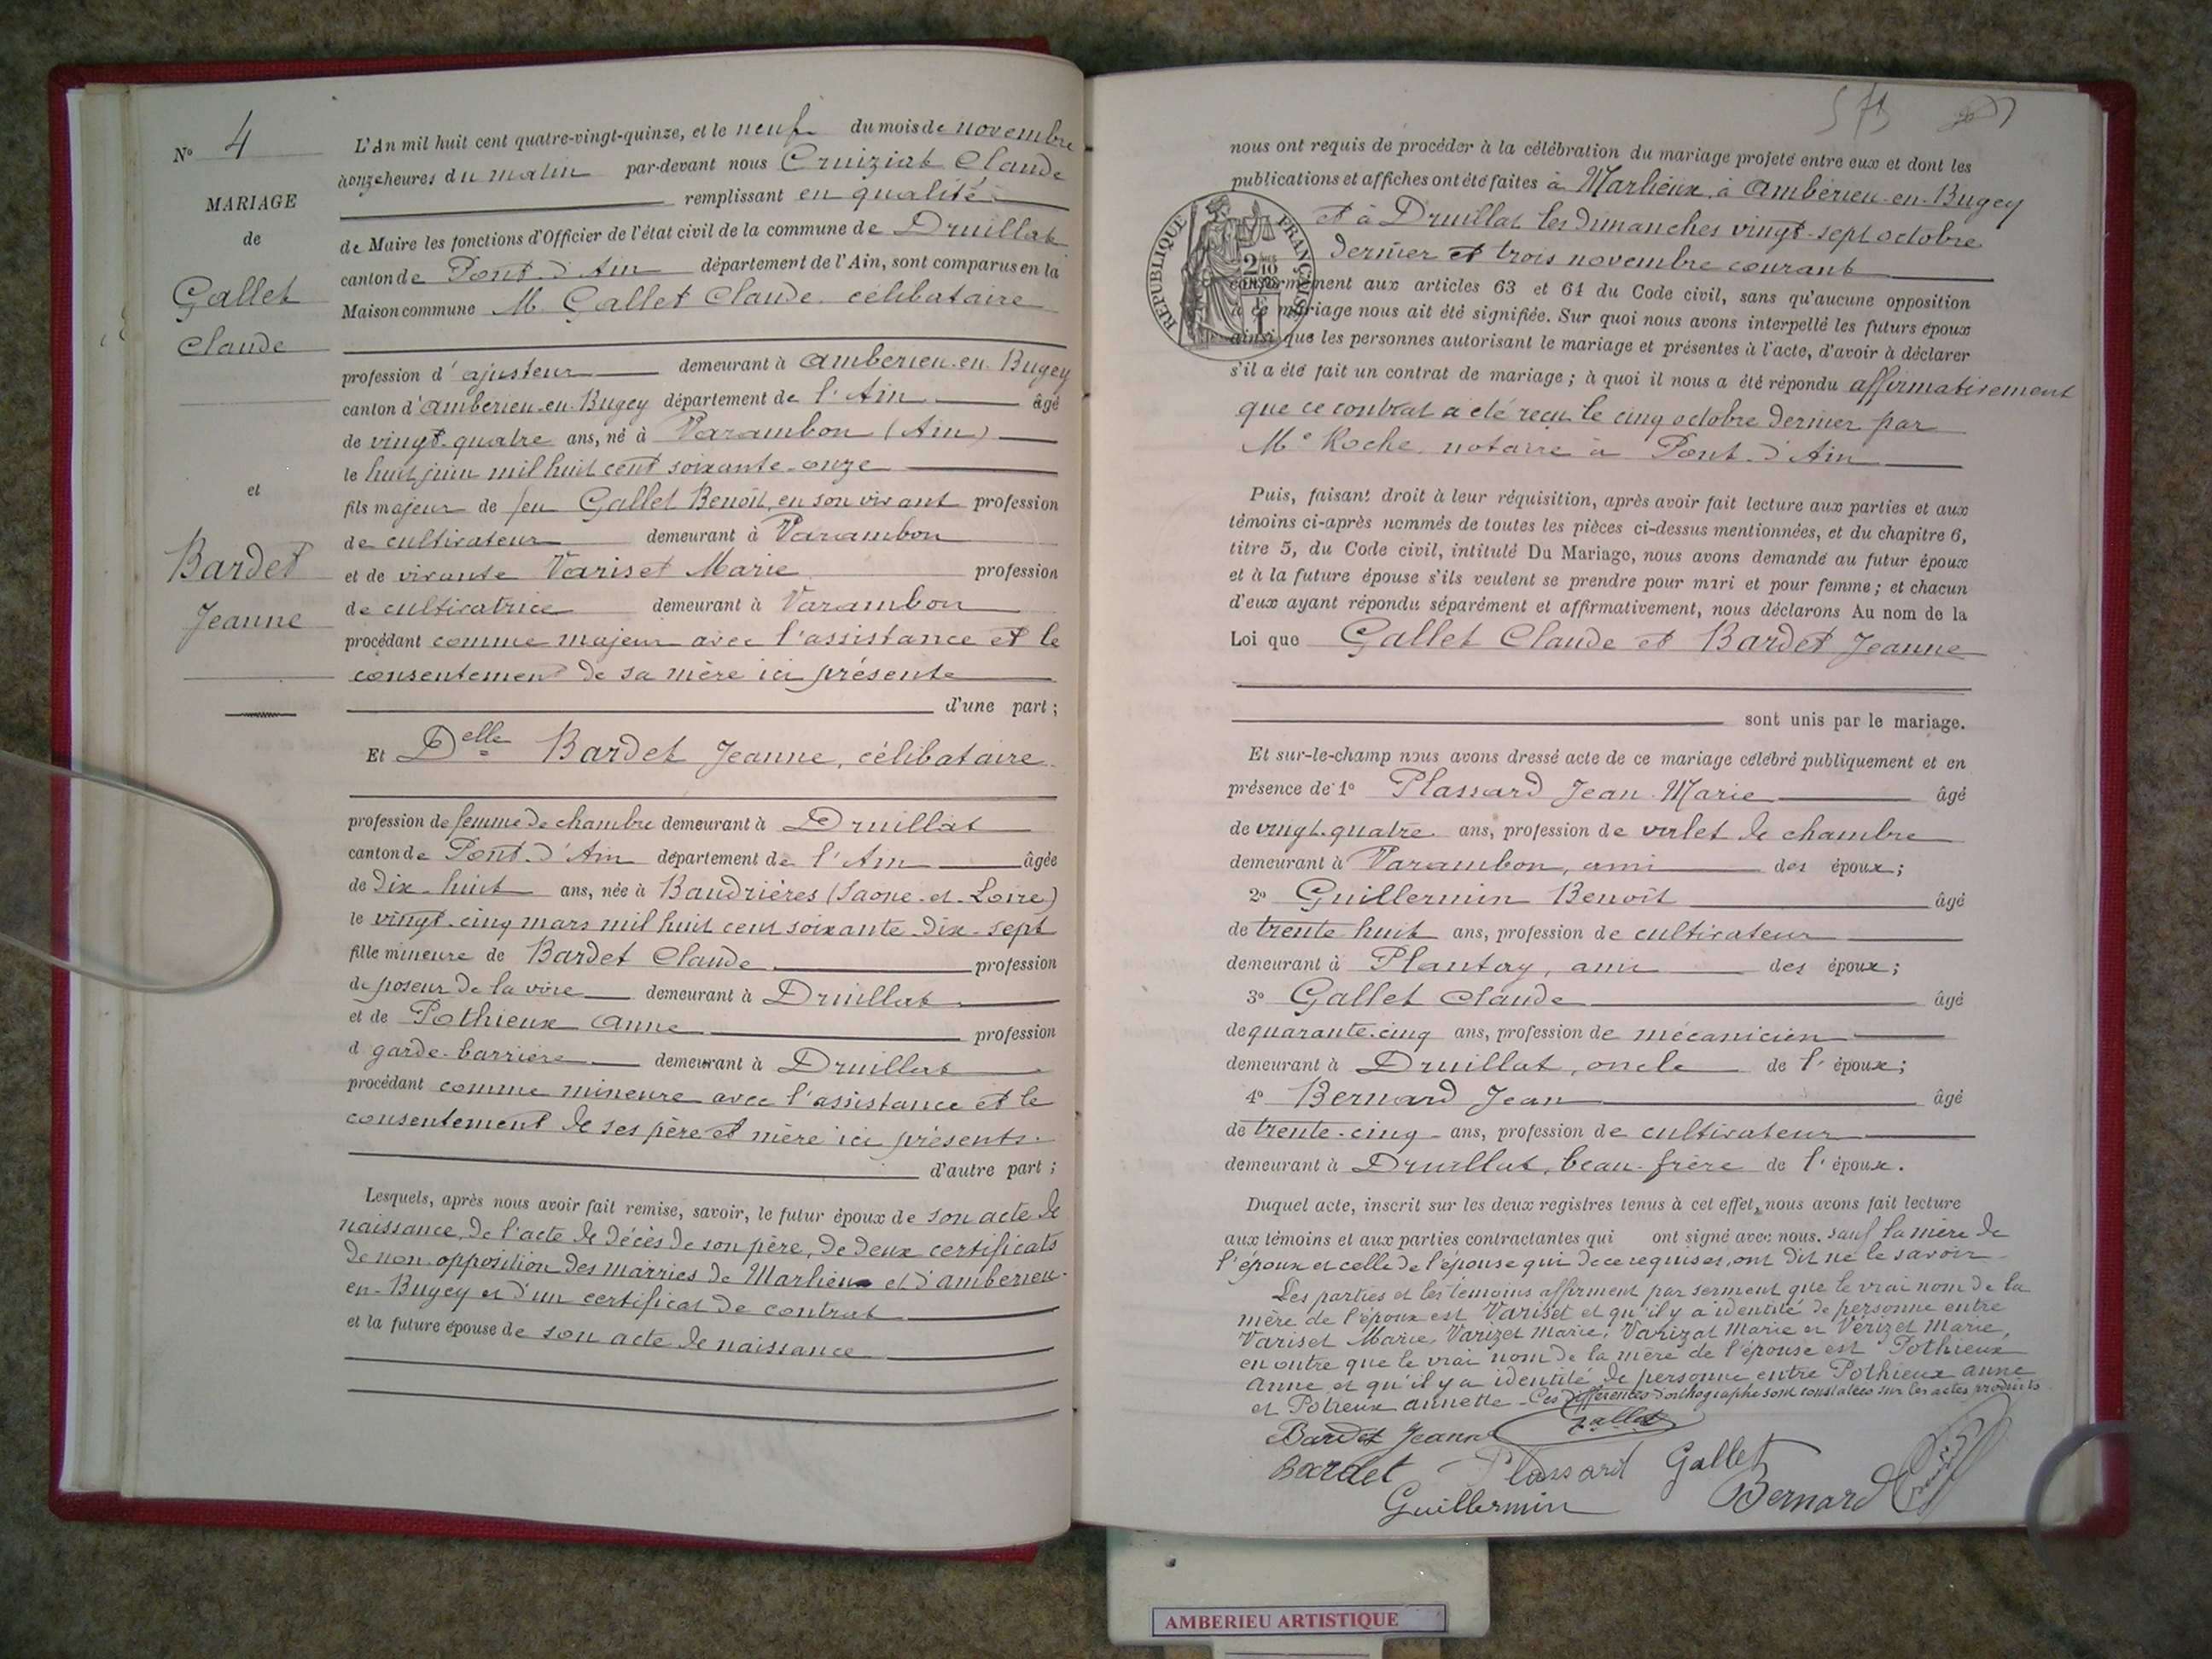 N° 4
MARIAGE
de
Gallet
Claude
et
Bardet
Jeanne
L'An mil huit cent quatre-vingt-quinze, et le neuf du mois de novembre
à onze heures du matin par-devant nous Cruiziat Claude
remplissant en qualité
de Maire les fonctions d'Officier de l'état civil de la commune de Druillat
canton de Pont-d'Ain département de l'Ain, sont comparus en la
Maison commune M. Gallet Claude célibataire
profession d'ajusteur demeurant à Ambérieu-en-Bugey
canton d'Ambérieu-en-Bugey département de l'Ain âgé
de vingt-quatre ans, né à Varambon (Ain)
le huit juin mil huit cent soixante-onze
fils majeur de feu Gallet Benoît, en son vivant profession
de cultivateur demeurant à Varambon
et de vivante Variset Marie profession
de cultivatrice demeurant à Varambon
procédant comme majeur avec l'assistance et le
consentement de sa mère ici présente
d'une part ;
Et Delle Bardet Jeanne, célibataire
profession de femme de chambre demeurant à Druillat
canton de Pont-d'Ain département de l'Ain âgée
de dix-huit ans, née à Baudrières (Saone-et-Loire)
le vingt-cinq mars mil huit cent soixante-dix-sept
fille mineure de Bardet Claude profession
de poseur de la voie demeurant à Druillat
et de Pothieux Anne profession
d garde-barrière demeurant à Druillat
procédant comme mineure avec l'assistance et le
consentement de ses père et mère ici présents.
d'autre part ;
Lesquels, après nous avoir fait remise, savoir, le futur époux de son acte de
naissance, de l'acte de décès de son père, de deux certificats
de non-opposition des mairies de Marlieux et d'Ambérieu-
en-Bugey et d'un certificat de contrat
et la future épouse de son acte de naissance
nous ont requis de procéder à la célébration du mariage projeté entre eux et dont les
publications et affiches ont été faites à Marlieux, à Ambérieu-en-Bugey
et à Druillat les dimanches vingt-sept octobre
dernier et trois novembre courant
RÉPUBLIQUE FRANÇAISE
2/10
conformément aux articles 63 et 64 du Code civil, sans qu'aucune opposition
à ce mariage nous ait été signifiée. Sur quoi nous avons interpellé les futurs époux
ainsi que les personnes autorisant le mariage et présentes à l'acte, d'avoir à déclarer
s'il a été fait un contrat de mariage ; à quoi il nous a été répondu affirmativement
que ce contrat a été reçu le cinq octobre dernier par
Me Roche notaire à Pont-d'Ain
Puis, faisant droit à leur réquisition, après avoir fait lecture aux parties et aux
témoins ci-après nommés de toutes les pièces ci-dessus mentionnées, et du chapitre 6,
titre 5, du Code civil, intitulé Du Mariage, nous avons demandé au futur époux
et à la future épouse s'ils veulent se prendre pour mari et pour femme ; et chacun
d'eux ayant répondu séparément et affirmativement, nous déclarons Au nom de la
Loi que Gallet Claude et Bardet Jeanne
sont unis par le mariage.
Et sur-le-champ nous avons dressé acte de ce mariage célébré publiquement et en
présence de 1° Plassard Jean-Marie âgé
de vingt-quatre ans, profession de valet de chambre
demeurant à Varambon, ami des époux ;
2° Guillermin Benoît âgé
de trente-huit ans, profession de cultivateur
demeurant à Plantay, ami des époux ;
3° Gallet Claude âgé
de quarante-cinq ans, profession de mécanicien
demeurant à Druillat, oncle de l'époux ;
4° Bernard Jean âgé
de trente-cinq ans, profession de cultivateur
demeurant à Druillat, beau-frère de l'époux.
Duquel acte, inscrit sur les deux registres tenus à cet effet, nous avons fait lecture
aux témoins et aux parties contractantes qui ont signé avec nous. sauf la mère de
l'époux et celle de l'épouse qui de ce requises, ont dit ne le savoir
Les parties et les témoins affirment par serment que le vrai nom de la
mère de l'époux est Variset et qu'il y a identité de personne entre
Variset Marie, Varizet Marie, Varizat Marie et Vérizet Marie,
en outre que le vrai nom de la mère de l'épouse est Pothieux
Anne et qu'il y a identité de personne entre Pothieux Anne
et Potieux Annette. Ces différences d'orthographe sont constatées sur les actes produits
Bardet Jeanne Gallet
Bardet Plassard Gallet
Guillermin Bernard
AMBERIEU ARTISTIQUE